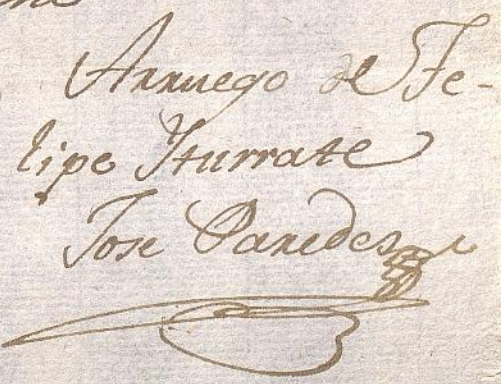 Arruego de Fe-
lipe Yturrate
Jose Paredes